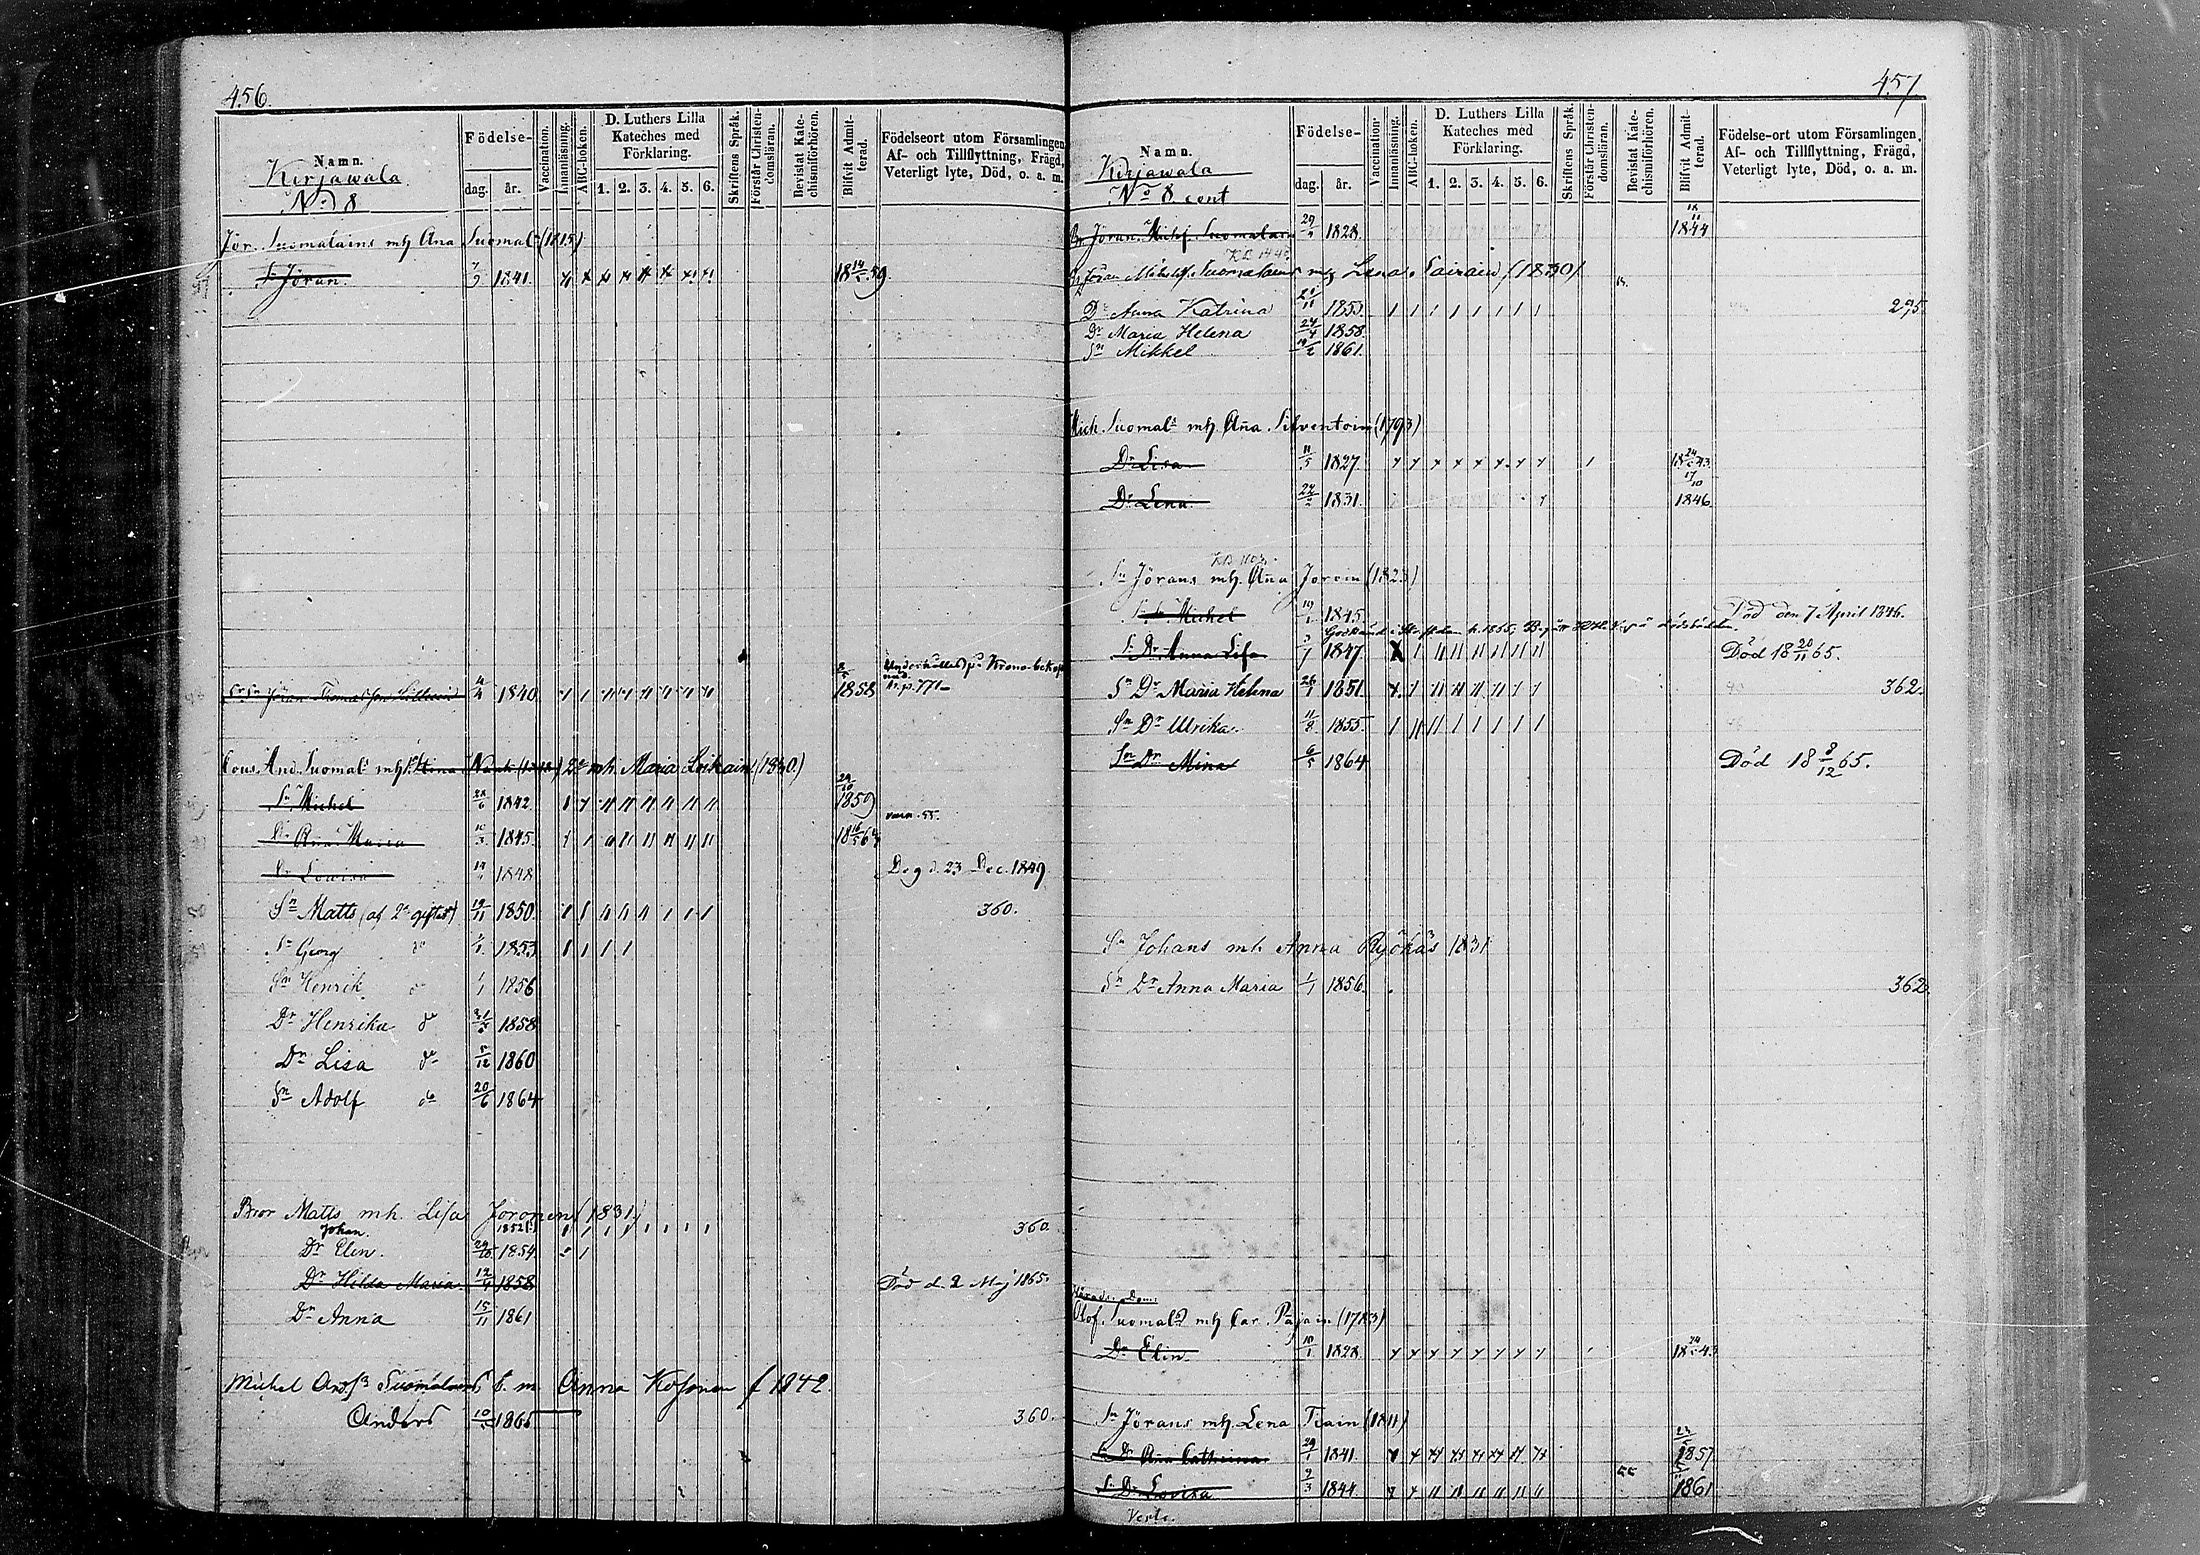 456.
Namn.
Kirjawala
No 8
Födelse-
dag. år.
Vaccination.
Innanläsning.
ABC-boken.
D. Luthers Lilla
Kateches med
Förklaring.
1. 2. 3. 4. 5. 6.
Skriftens Språk.
Förstår Christen-
domsläran.
Bevistat Kate-
chismiförhören.
Blifvit Admit-
terad.
Födelseort utom Församlingen,
Af- och Tillflyttning, Frägd,
Veterligt lyte, Död, o. a. m.
Jör. Suomalains mh Ana Suomal (1815)
Sn Jöran. 1841 18 14/5 59
Underhålles på Krono-bekost
nad.
1840. 1858 771
Cous. And. Suomals mh Stina 2a mh. Maria Loikain (1830.)
Sn Michel 28/6 1842 1859
vacn. 55.
Dr Ana Maria 10/3 1845. 18 16/5 64
Dr Lovisa 1848 Dog d. 23 Dec. 1849
Sn Matts (af 2a giftet) 19/11 1850. 360.
Sn Georg do 1853
Sn Henrik do 1/1 1856
Dr Henrika do 1858
Dr Lisa do 5/12 1860
Sn Adolf do 20/6 1864
Bror Matts mh. Lisa Joronen (1831)
Johan. 1852 360.
Dr Elin. 29/10 1854
Dr Hilda Maria 12/9 1858 Död d. 2 Maj 1865.
Dr Anna 15/11 1861
Michel Ands Suomalain m Anna Kosonen f 1842.
Anders 1865 360.
457
Namn.
Kirjawala
No 8 cont
Födelse-
dag. år.
Vaccination
Innanläsning.
ABC-boken.
D. Luthers Lilla
Kateches med
Förklaring.
1. 2. 3. 4. 5. 6.
Skriftens Språk.
Förstår Christen-
domsläran.
Bevistat Kate-
chismiförhören.
Blifvit Admit-
terad.
Födelse-ort utom Församlingen,
Af- och Tillflyttning, Frägd,
Veterligt lyte, Död, o. a. m.
Br Jöran Michs. Suomalain 1828. 18/11 1844
Jöran Suomalains mh Lena Tairain (1830)
Dr Anna Katrina 1853. 295.
Dr Maria Helena 24/4 1858.
Sn Mikkel 1861.
Mich. Suomals mh Ana. Silventoin (1793)
Dr Lisa 11/5 1827. 18 24/ 43
17/10
Dr Lena 1831. 1846
Sn Jörans mh. Ana Joroin (1823)
Michel 19/1 1845. Död den 7 April 1846.
Sn Dr Anna Lisa 1847. Död 18 20/11 65.
Sn Dr Maria Helena 26/1 1851. 362.
Sn Dr Ulrika. 11/9 1855.
Sn Dr Mina 6/5 1864 Död 18 8/12 65.
Sn Johans mh Anna Ryökäs 1831
Sn Dr Anna Maria 1/1 1856. 362.
Olof. Suomals mh Car. Pajain (1783)
Dr Elin 1828. 18 24/ 43
Sn Jörans mh Lena Tiain (1811)
Sn Dr Ana Cathrina 1841. 1857
Sn Dr Lovisa 1844 1861
Verte.